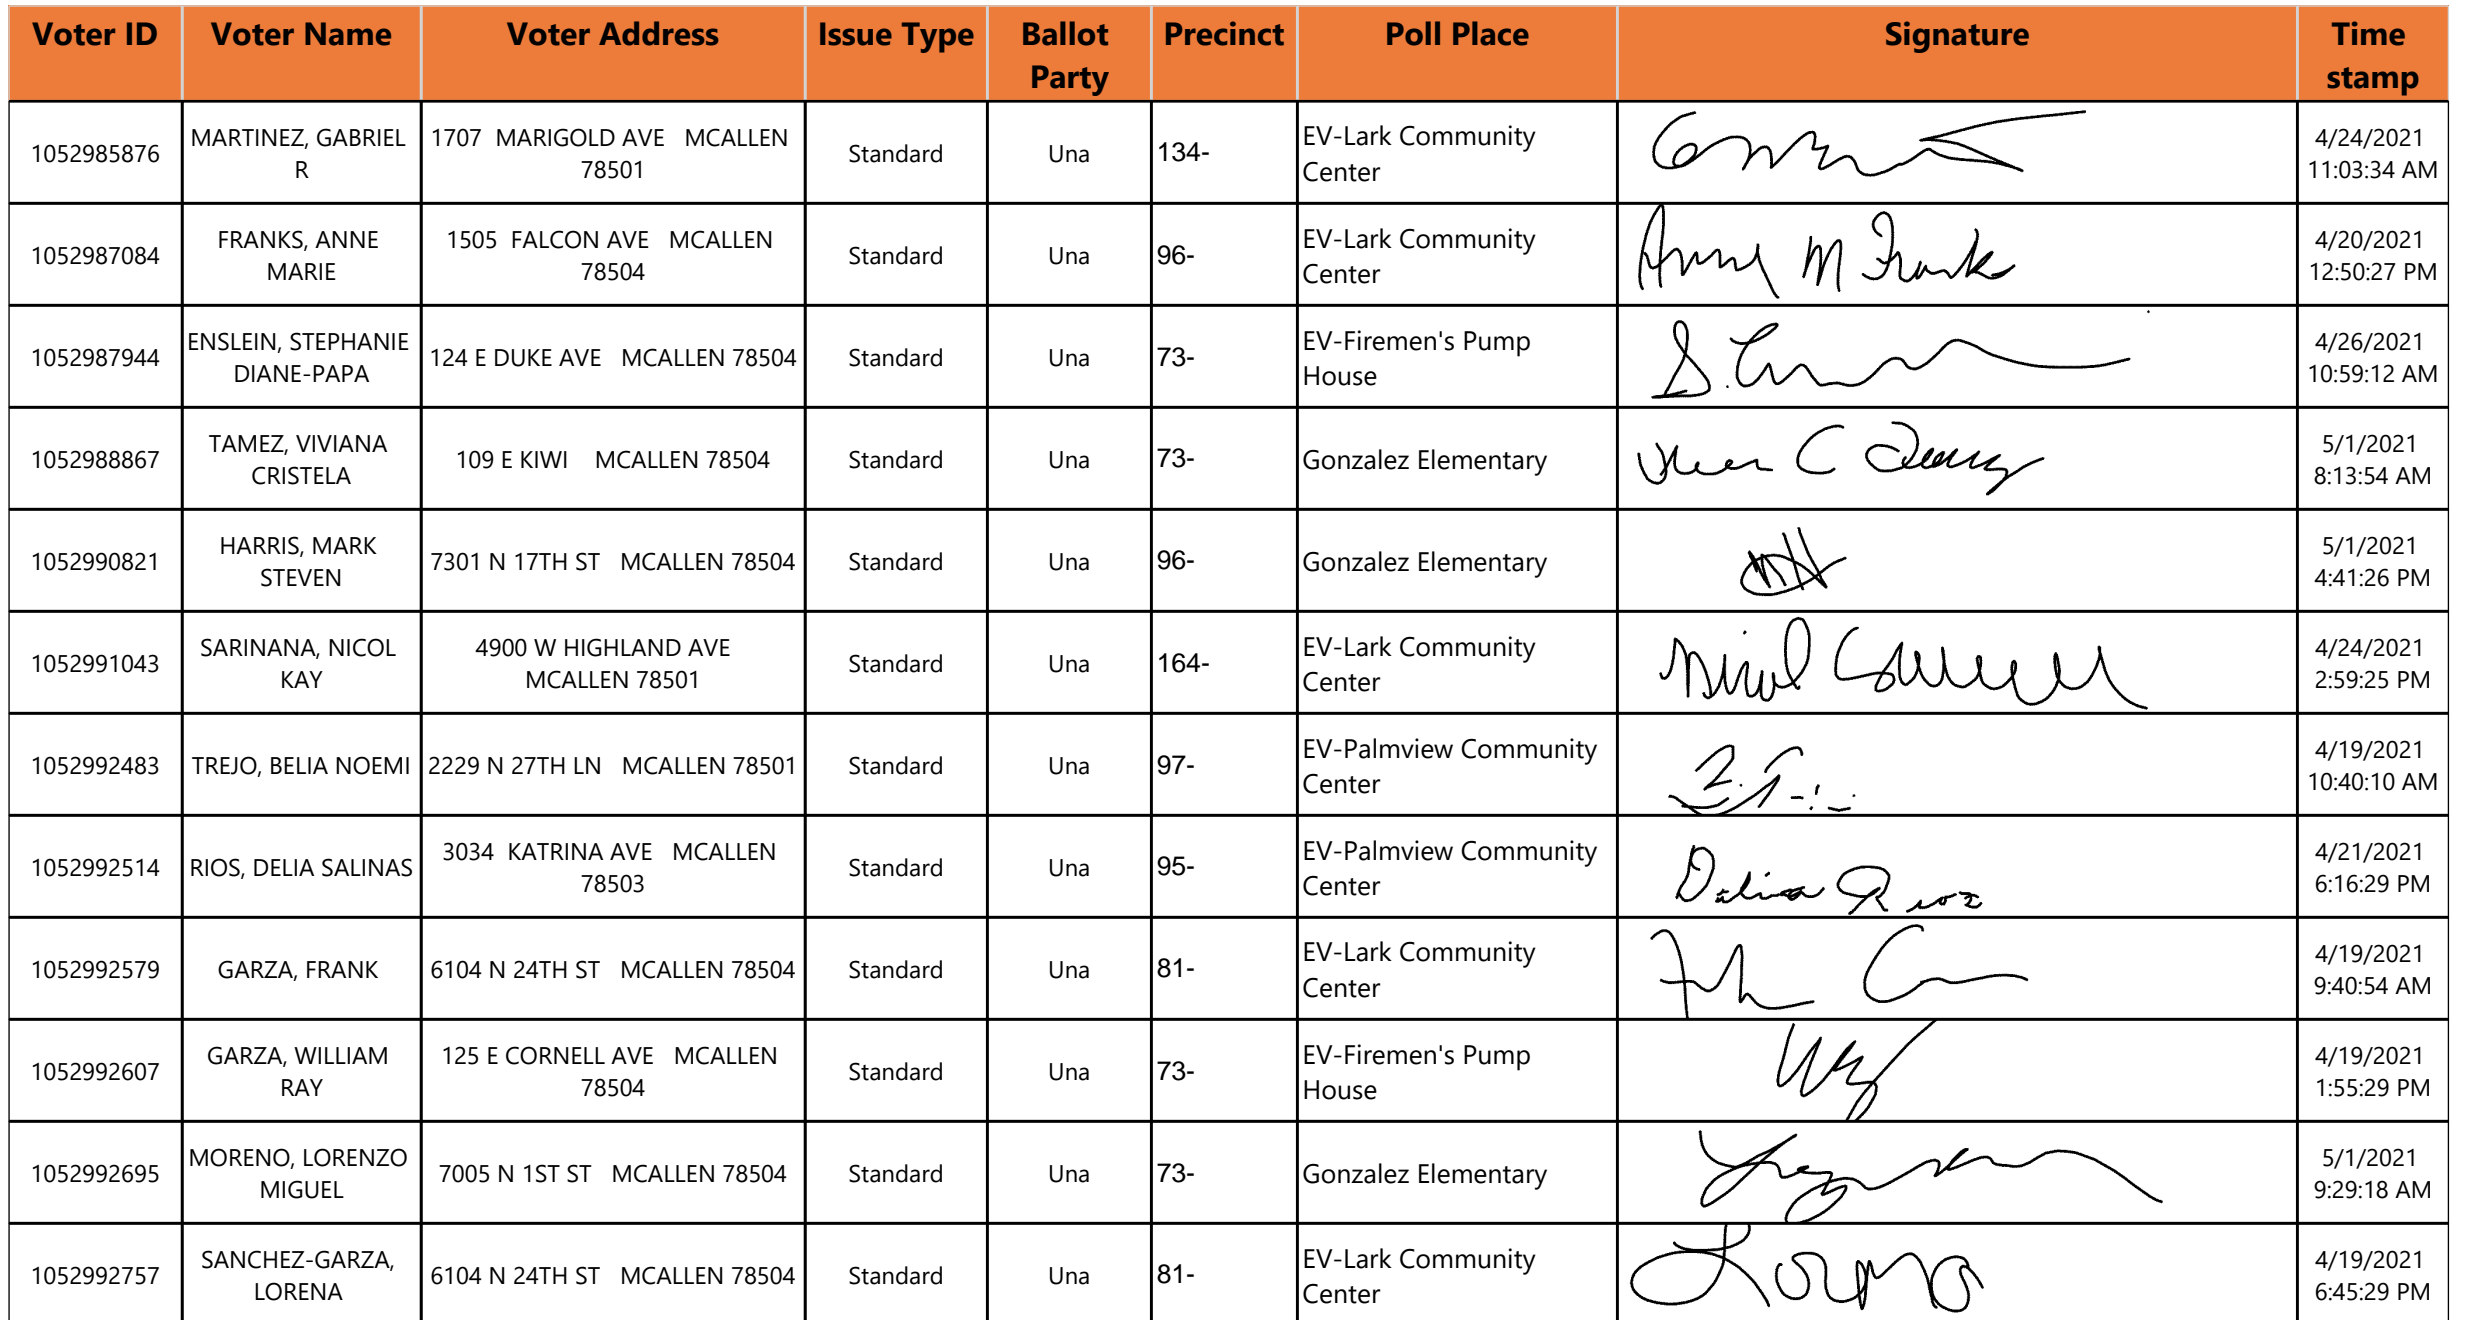 Voter ID Voter Name Voter Address Issue Type Ballot Party Precinct Poll Place Signature Time stamp
1052985876 MARTINEZ, GABRIEL R 1707 MARIGOLD AVE MCALLEN 78501 Standard Una 134- EV-Lark Community Center 4/24/2021 11:03:34 AM
1052987084 FRANKS, ANNE MARIE 1505 FALCON AVE MCALLEN 78504 Standard Una 96- EV-Lark Community Center Anne M Franks 4/20/2021 12:50:27 PM
1052987944 ENSLEIN, STEPHANIE DIANE-PAPA 124 E DUKE AVE MCALLEN 78504 Standard Una 73- EV-Firemen's Pump House 4/26/2021 10:59:12 AM
1052988867 TAMEZ, VIVIANA CRISTELA 109 E KIWI MCALLEN 78504 Standard Una 73- Gonzalez Elementary 5/1/2021 8:13:54 AM
1052990821 HARRIS, MARK STEVEN 7301 N 17TH ST MCALLEN 78504 Standard Una 96- Gonzalez Elementary MH 5/1/2021 4:41:26 PM
1052991043 SARINANA, NICOL KAY 4900 W HIGHLAND AVE MCALLEN 78501 Standard Una 164- EV-Lark Community Center Nicol 4/24/2021 2:59:25 PM
1052992483 TREJO, BELIA NOEMI 2229 N 27TH LN MCALLEN 78501 Standard Una 97- EV-Palmview Community Center 4/19/2021 10:40:10 AM
1052992514 RIOS, DELIA SALINAS 3034 KATRINA AVE MCALLEN 78503 Standard Una 95- EV-Palmview Community Center Delia Rios 4/21/2021 6:16:29 PM
1052992579 GARZA, FRANK 6104 N 24TH ST MCALLEN 78504 Standard Una 81- EV-Lark Community Center 4/19/2021 9:40:54 AM
1052992607 GARZA, WILLIAM RAY 125 E CORNELL AVE MCALLEN 78504 Standard Una 73- EV-Firemen's Pump House 4/19/2021 1:55:29 PM
1052992695 MORENO, LORENZO MIGUEL 7005 N 1ST ST MCALLEN 78504 Standard Una 73- Gonzalez Elementary 5/1/2021 9:29:18 AM
1052992757 SANCHEZ-GARZA, LORENA 6104 N 24TH ST MCALLEN 78504 Standard Una 81- EV-Lark Community Center 4/19/2021 6:45:29 PM